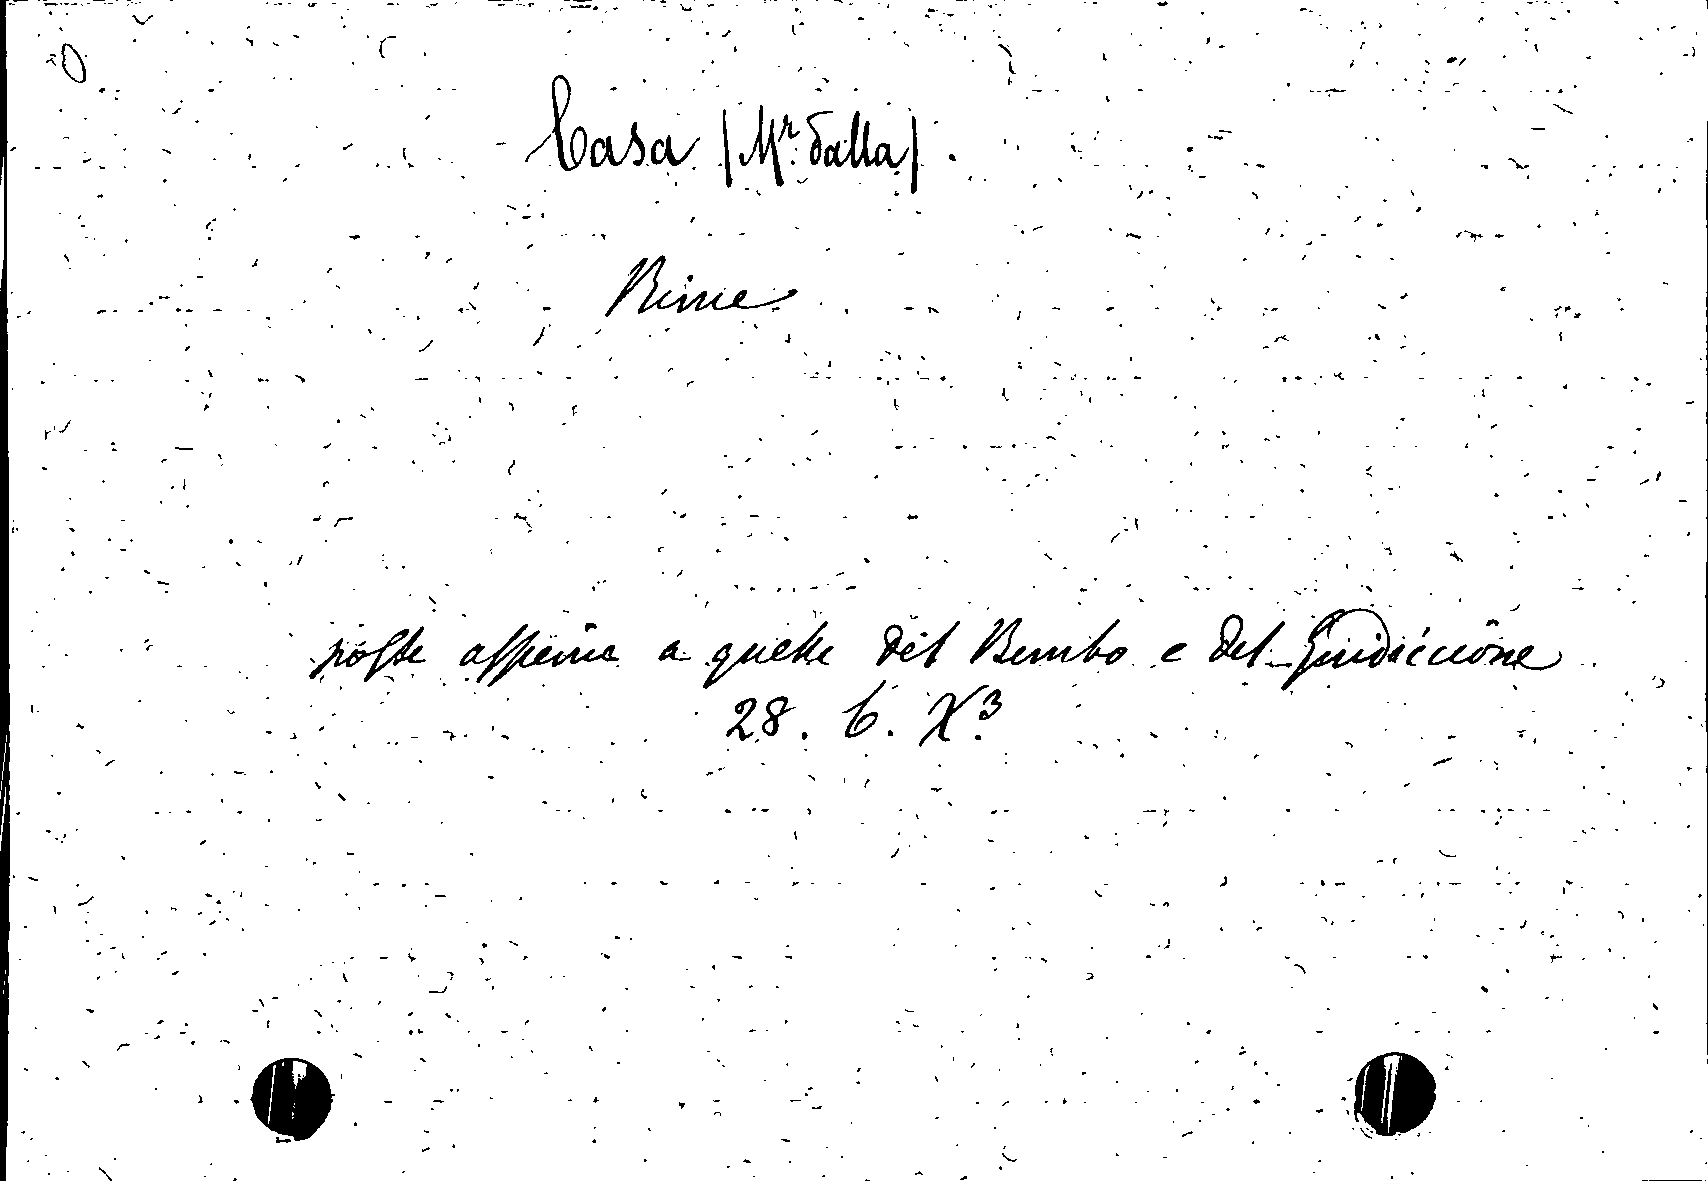 Casa (Mr. dalla).
Rime
poste assieme a quelle del Bembo e del Guidiccione
28. 6. X.3